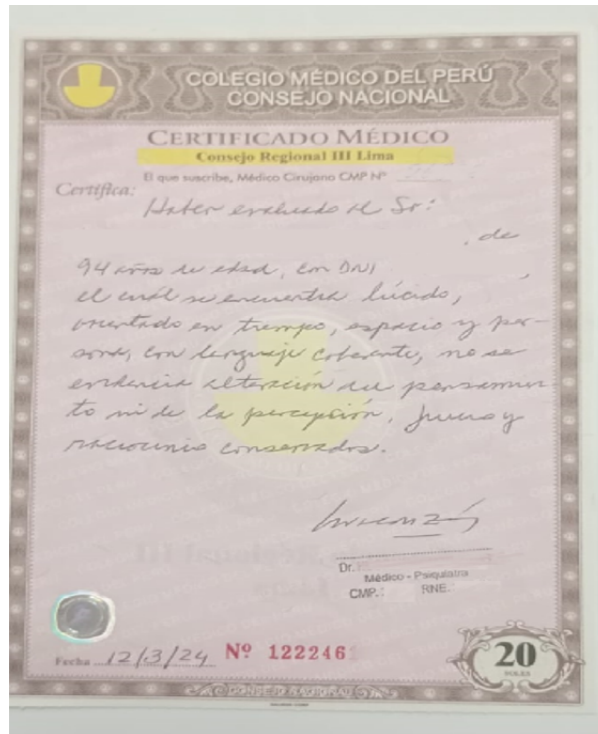 COLEGIO MÉDICO DEL PERÚ
CONSEJO NACIONAL
CERTIFICADO MÉDICO
Consejo Regional III Lima
El que suscribe, Médico Cirujano CMP Nº
Certifica:
Haber evaluado al Sr:
, de
94 años de edad, con DNI ,
el cuál se encuentra lúcido,
orientado en tiempo, espacio y per-
sona, con lenguaje coherente, no se
evidencia alteración del pensamien-
to ni de la percepción, juicio y
raciocinio conservados.
Dr.
Médico - Psiquiatra
CMP.: RNE.:
Fecha 12/3/24 Nº 122246
20
SOLES
CONSEJO NACIONAL